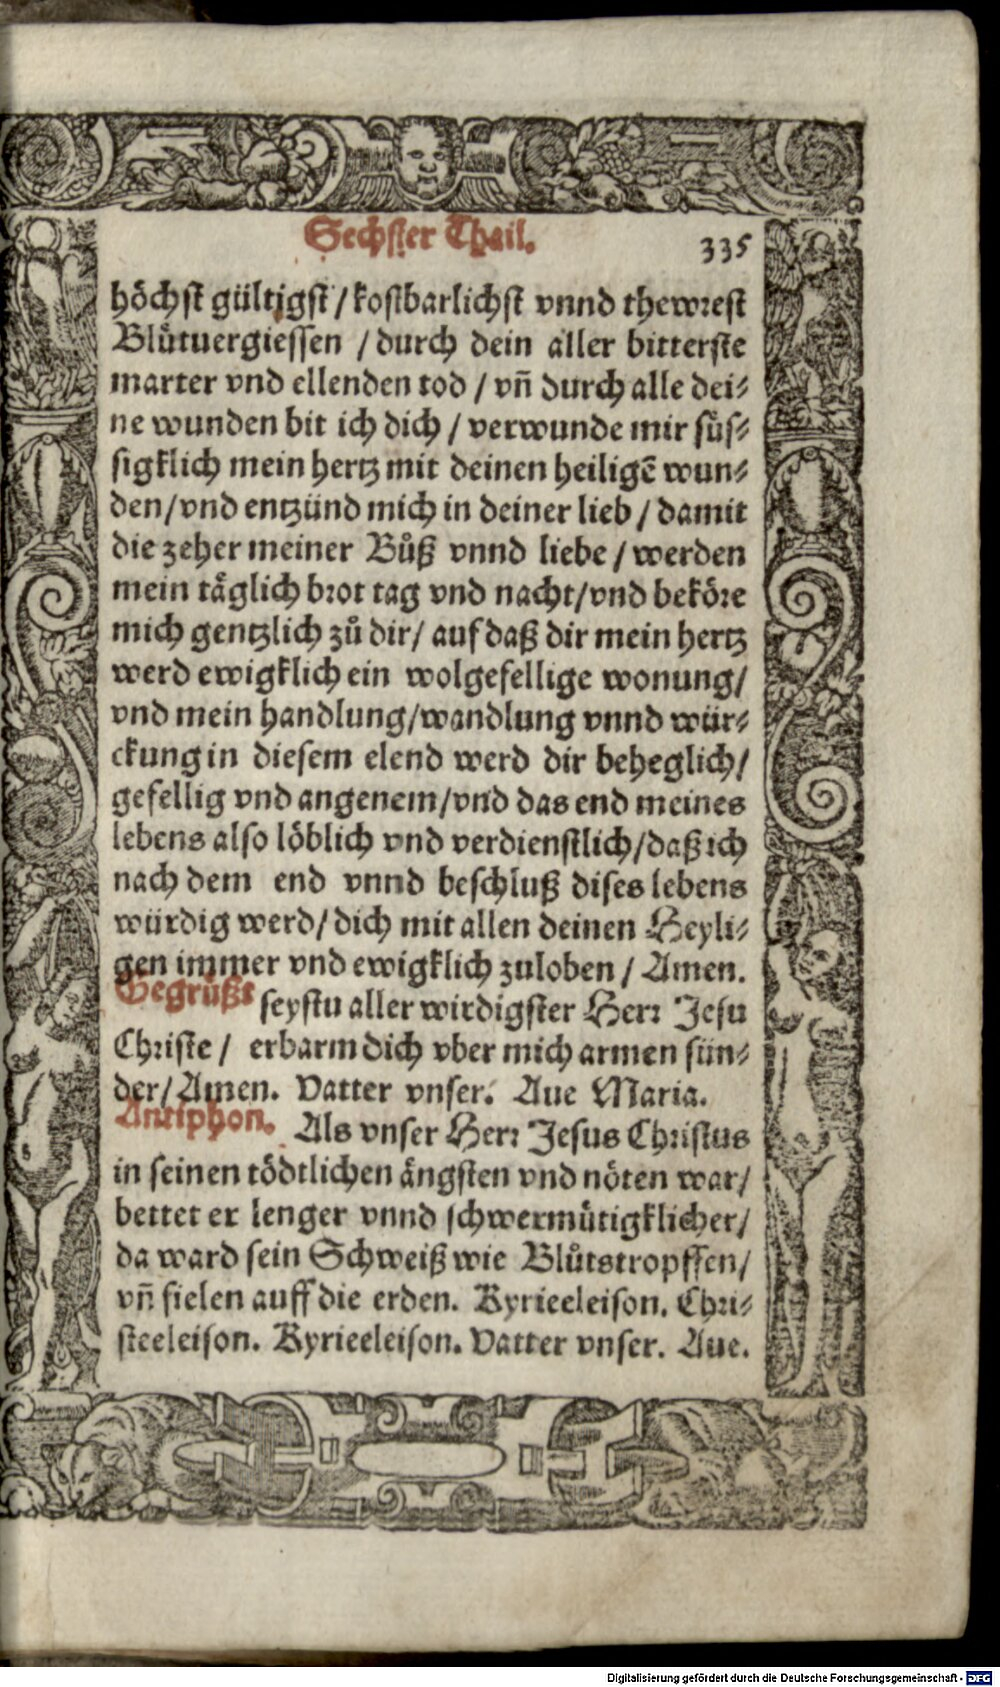 Sechster Thail. 335
höchst gültigst / kostbarlichst vnnd thewrest
Blůtuergiessen / durch dein aller bitterste
marter vnd ellenden tod / vñ durch alle dei⸗
ne wunden bit ich dich / verwunde mir süs⸗
sigklich mein hertz mit deinen heiligẽ wun⸗
den/vnd entzünd mich in deiner lieb / damit
die zeher meiner Bůß vnnd liebe / werden
mein täglich brot tag vnd nacht/vnd beköre
mich gentzlich zů dir/ auf daß dir mein hertz
werd ewigklich ein wolgefellige wonung/
vnd mein handlung/wandlung vnnd wür⸗
ckung in diesem elend werd dir beheglich/
gefellig vnd angenem/vnd das end meines
lebens also löblich vnd verdienstlich/daß ich
nach dem end vnnd beschluß dises lebens
würdig werd/ dich mit allen deinen Heyli⸗
gen immer vnd ewigklich zuloben / Amen.
Gegrüßt seystu aller wirdigster Herr Jesu
Christe / erbarm dich vber mich armen sün⸗
der/ Amen. Vatter vnser. Aue Maria.
Antiphon. Als vnser Herr Jesus Christus
in seinen tödtlichen ängsten vnd nöten war/
bettet er lenger vnnd schwermütigklicher/
da ward sein Schweiß wie Blůtstropffen/
vñ fielen auff die erden. Kyrieeleison. Chri⸗
steeleison. Kyrieeleison. Vatter vnser. Aue.
Digitalisierung gefördert durch die Deutsche Forschungsgemeinschaft - DFG